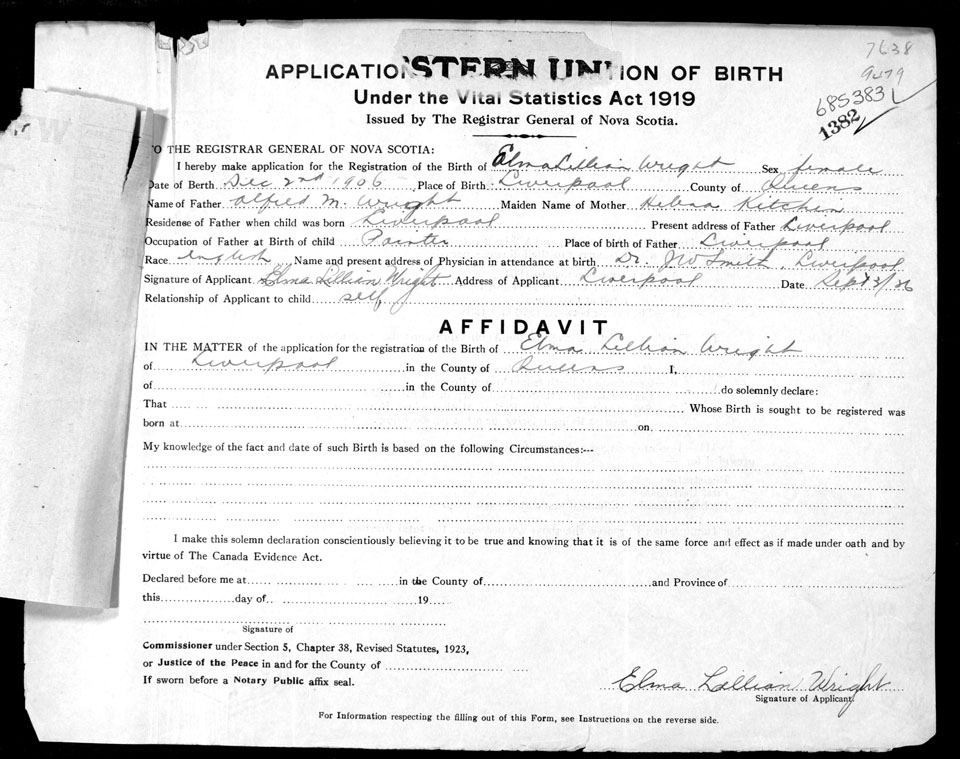 7638
9479
685383
1382
APPLICATION STERN UNI ION OF BIRTH
Under the Vital Statistics Act 1919
Issued by The Registrar General of Nova Scotia.
TO THE REGISTRAR GENERAL OF NOVA SCOTIA:
I hereby make application for the Registration of the Birth of Elma Lillian Wright Sex female
Date of Birth Dec 2nd 1906 Place of Birth Liverpool County of Queens
Name of Father Alfred M. Wright Maiden Name of Mother Kitchin
Residense of Father when child was born Liverpool Present address of Father Liverpool
Occupation of Father at Birth of child Painter Place of birth of Father Liverpool
Race English Name and present address of Physician in attendance at birth Dr. J W Smith, Liverpool
Signature of Applicant Elma Lillian Wright Address of Applicant Liverpool Date Sept 3/26
Relationship of Applicant to child self
AFFIDAVIT
IN THE MATTER of the application for the registration of the Birth of Elma Lillian Wright
of Liverpool in the County of Queens I,
of in the County of do solemnly declare:
That Whose Birth is sought to be registered was
born at on
My knowledge of the fact and date of such Birth is based on the following Circumstances:---
I make this solemn declaration conscientiously believing it to be true and knowing that it is of the same force and effect as if made under oath and by
virtue of The Canada Evidence Act.
Declared before me at in the County of and Province of
this day of 19
Signature of
Commissioner under Section 5, Chapter 38, Revised Statutes, 1923,
or Justice of the Peace in and for the County of
If sworn before a Notary Public affix seal.
Elma Lillian Wright
Signature of Applicant.
For Information respecting the filling out of this Form, see Instructions on the reverse side.